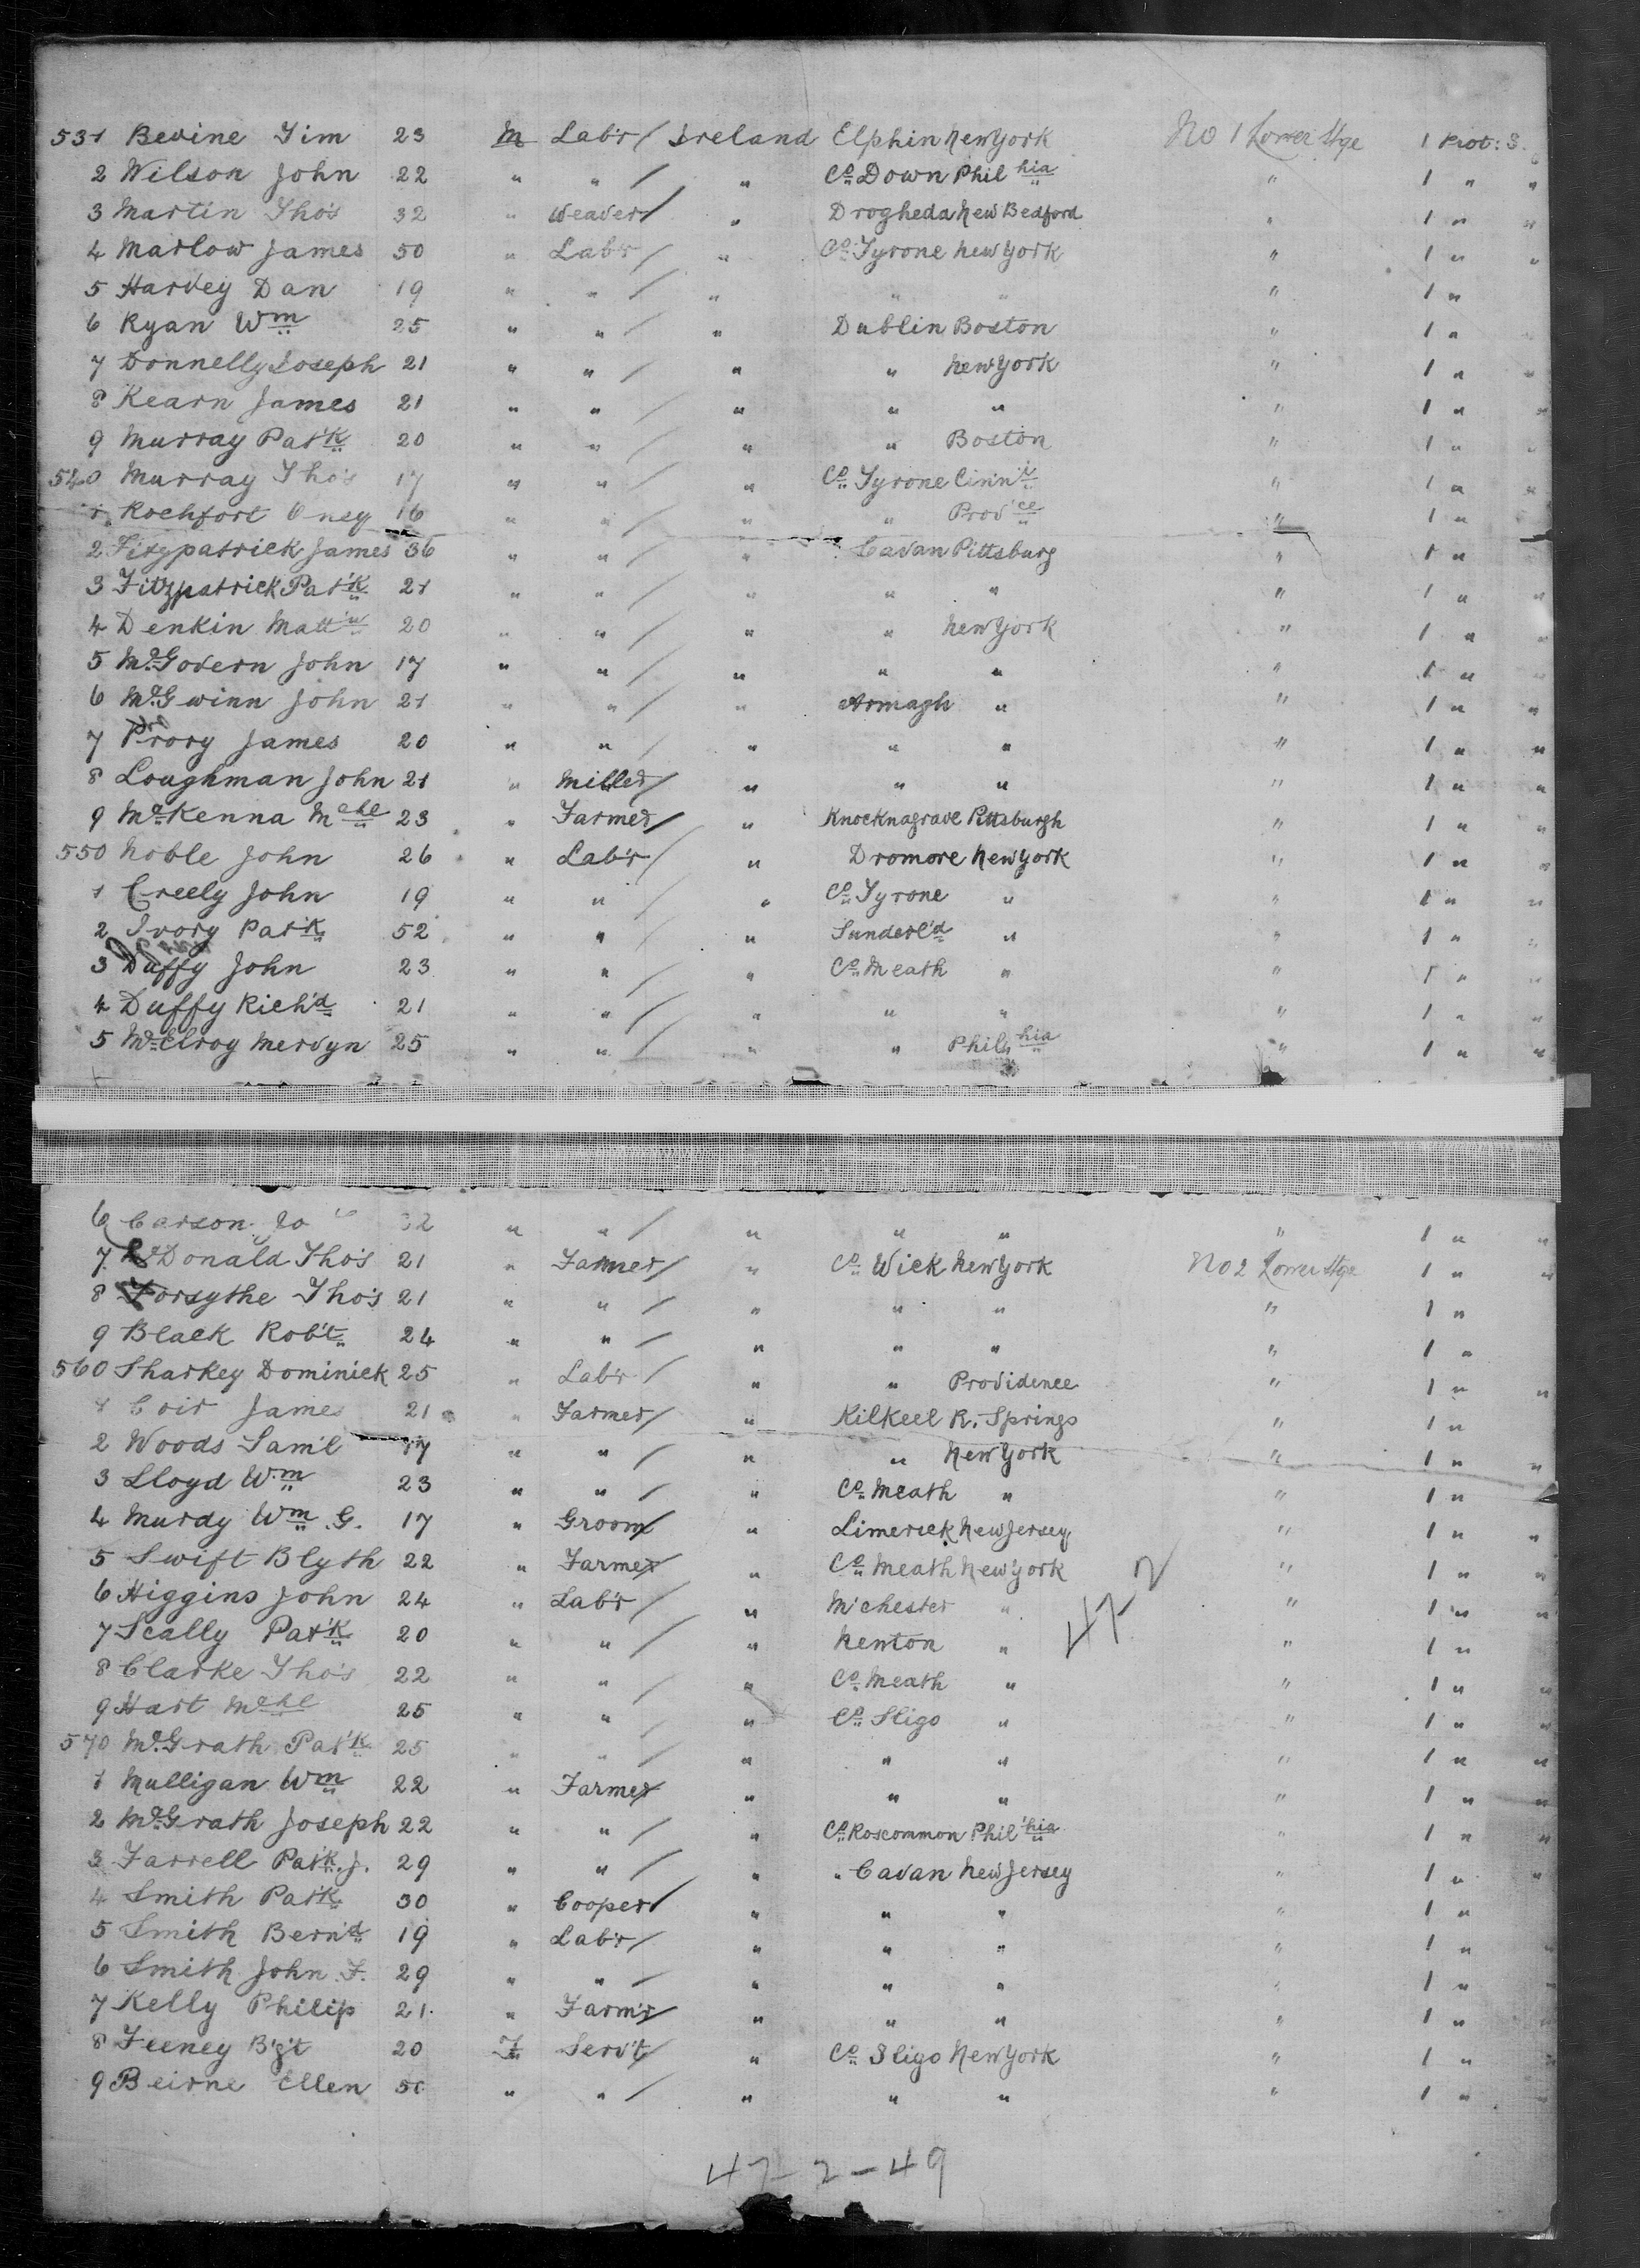 531 Bevine Jim 23 M Lab'r / Ireland Elphin New York No 1 Lower Stge 1 Prot: S.
2 Wilson John 22 " " / " Co Down Phil hia " 1 " "
3 Martin Tho's 32 " Weaver / " Drogheda New Bedford " 1 " "
4 Marlow James 50 " Lab'r / " Co Tyrone New York " 1 " "
5 Harvey Dan 19 " " / " " " " 1 "
6 Ryan Wm 25 " " / " Dublin Boston " 1 "
7 Donnelly Joseph 21 " " / " " New York " 1 " "
8 Kearn James 21 " " / " " " " 1 " "
9 Murray Pat'k 20 " " / " " Boston " 1 " "
540 Murray Tho's 17 " " / " Co Tyrone Cinn'ti " 1 " "
1 Rochfort Oney 16 " " / " " Prov'ce " 1 "
2 Fitzpatrick James 36 " " / " Cavan Pittsburg " 1 "
3 Fitzpatrick Pat'k 21 " " / " " " " 1 " "
4 Denkin Matt'w 20 " " / " " New York " 1 " "
5 McGovern John 17 " " / " " " " 1 " "
6 McGwinn John 21 " " / " Armagh " " 1 " "
7 Prory James 20 " " / " " " " 1 " "
8 Loughman John 21 " Miller / " " " " 1 " "
9 McKenna Mchl 23 " Farmer / " Knocknagrave Pittsburgh " 1 " "
550 Noble John 26 " Lab'r / " Dromore New York " 1 " "
1 Creely John 19 " " / " Co Tyrone " " 1 " "
2 Ivory Pat'k 52 " " / " Sunderl'd " " 1 " "
3 Duffy John 23 " " / " Co Meath " " 1 " "
4 Duffy Rich'd 21 " " / " " " " 1 " "
5 McElroy Mervyn 25 " " / " " Phil hia " 1 " "
6 Carson Jo " " / " " " " 1 " "
7 McDonald Tho's 21 " Farmer / " Co Wick New York No 2 Lower Stge 1 " "
8 Forsythe Tho's 21 " " / " " " " 1 "
9 Black Rob't 24 " " / " " " " 1 "
560 Sharkey Dominick 25 " Lab'r / " " Providence " 1 " "
1 Coir James 21 " Farmer / " Kilkeel R. Springs " 1 "
2 Woods Sam'l 17 " " / " " New York " 1 " "
3 Lloyd Wm 23 " " / " Co Meath " " 1 "
4 Murdy Wm G. 17 " Groom / " Limerick New Jersey " 1 " "
5 Swift Blyth 22 " Farmer / " Co Meath New York " 1 " "
6 Higgins John 24 " Lab'r / " M'chester " " 1 " "
47 2
7 Scally Pat'k 20 " " / " Newton " " 1 "
8 Clarke Tho's 22 " " / " Co Meath " " 1 " "
9 Hart Mchl 25 " " / " Co Sligo " " 1 " "
570 McGrath Pat'k 25 " " / " " " " 1 " "
1 Mulligan Wm 22 " Farmer / " " " " 1 " "
2 McGrath Joseph 22 " " / " Co Roscommon Phil'hia " 1 " "
3 Farrell Pat'k J. 29 " " / " " Cavan New Jersey " 1 " "
4 Smith Pat'k 30 " Cooper / " " " " 1 "
5 Smith Bern'd 19 " Lab'r / " " " " 1 " "
6 Smith John F. 29 " " / " " " " 1 " "
7 Kelly Philip 21 " Farm'r / " " " " 1 " "
8 Feeney B'g't 20 F Serv't / " Co Sligo New York " 1 " "
9 Beirne Ellen 50 " " / " " " " 1 " "
47 2-49